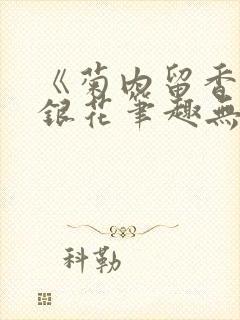 《菊内留香
銀花筆趣無
科勒